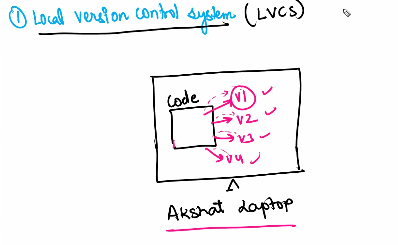 ① Local version control system (LVCS)
Code
v1 ✓
v2 ✓
v3 ✓
v4 ✓
Akshat Laptop